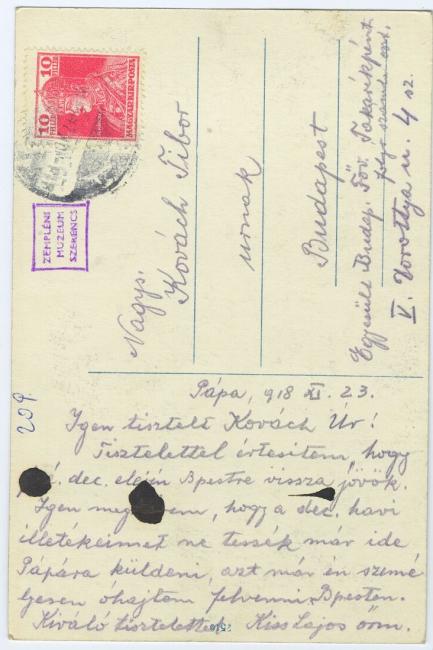 10
FILLÉR
10
FILLÉR
MAGYAR KIR. POSTA
ZEMPLÉNI
MÚZEUM
SZERENCS
Nagys.
Kovách Tibor
urnak
Budapest
Egyesült Budap. Főv. Takarékpént
V. Dorottya u. 4 sz.
209
Pápa, 918 XI. 23.
Igen tisztelt Kovách Úr!
Tisztelettel értesítem, hogy
dec. elején Bpestre vissza jövök.
Igen hogy a dec. havi
illetékeimet ne tessék már ide
Pápára küldeni, azt már én szemé
lyesen óhajtom felvenni Bpesten.
Kiváló tisztelettel Kiss Lajos őrm.